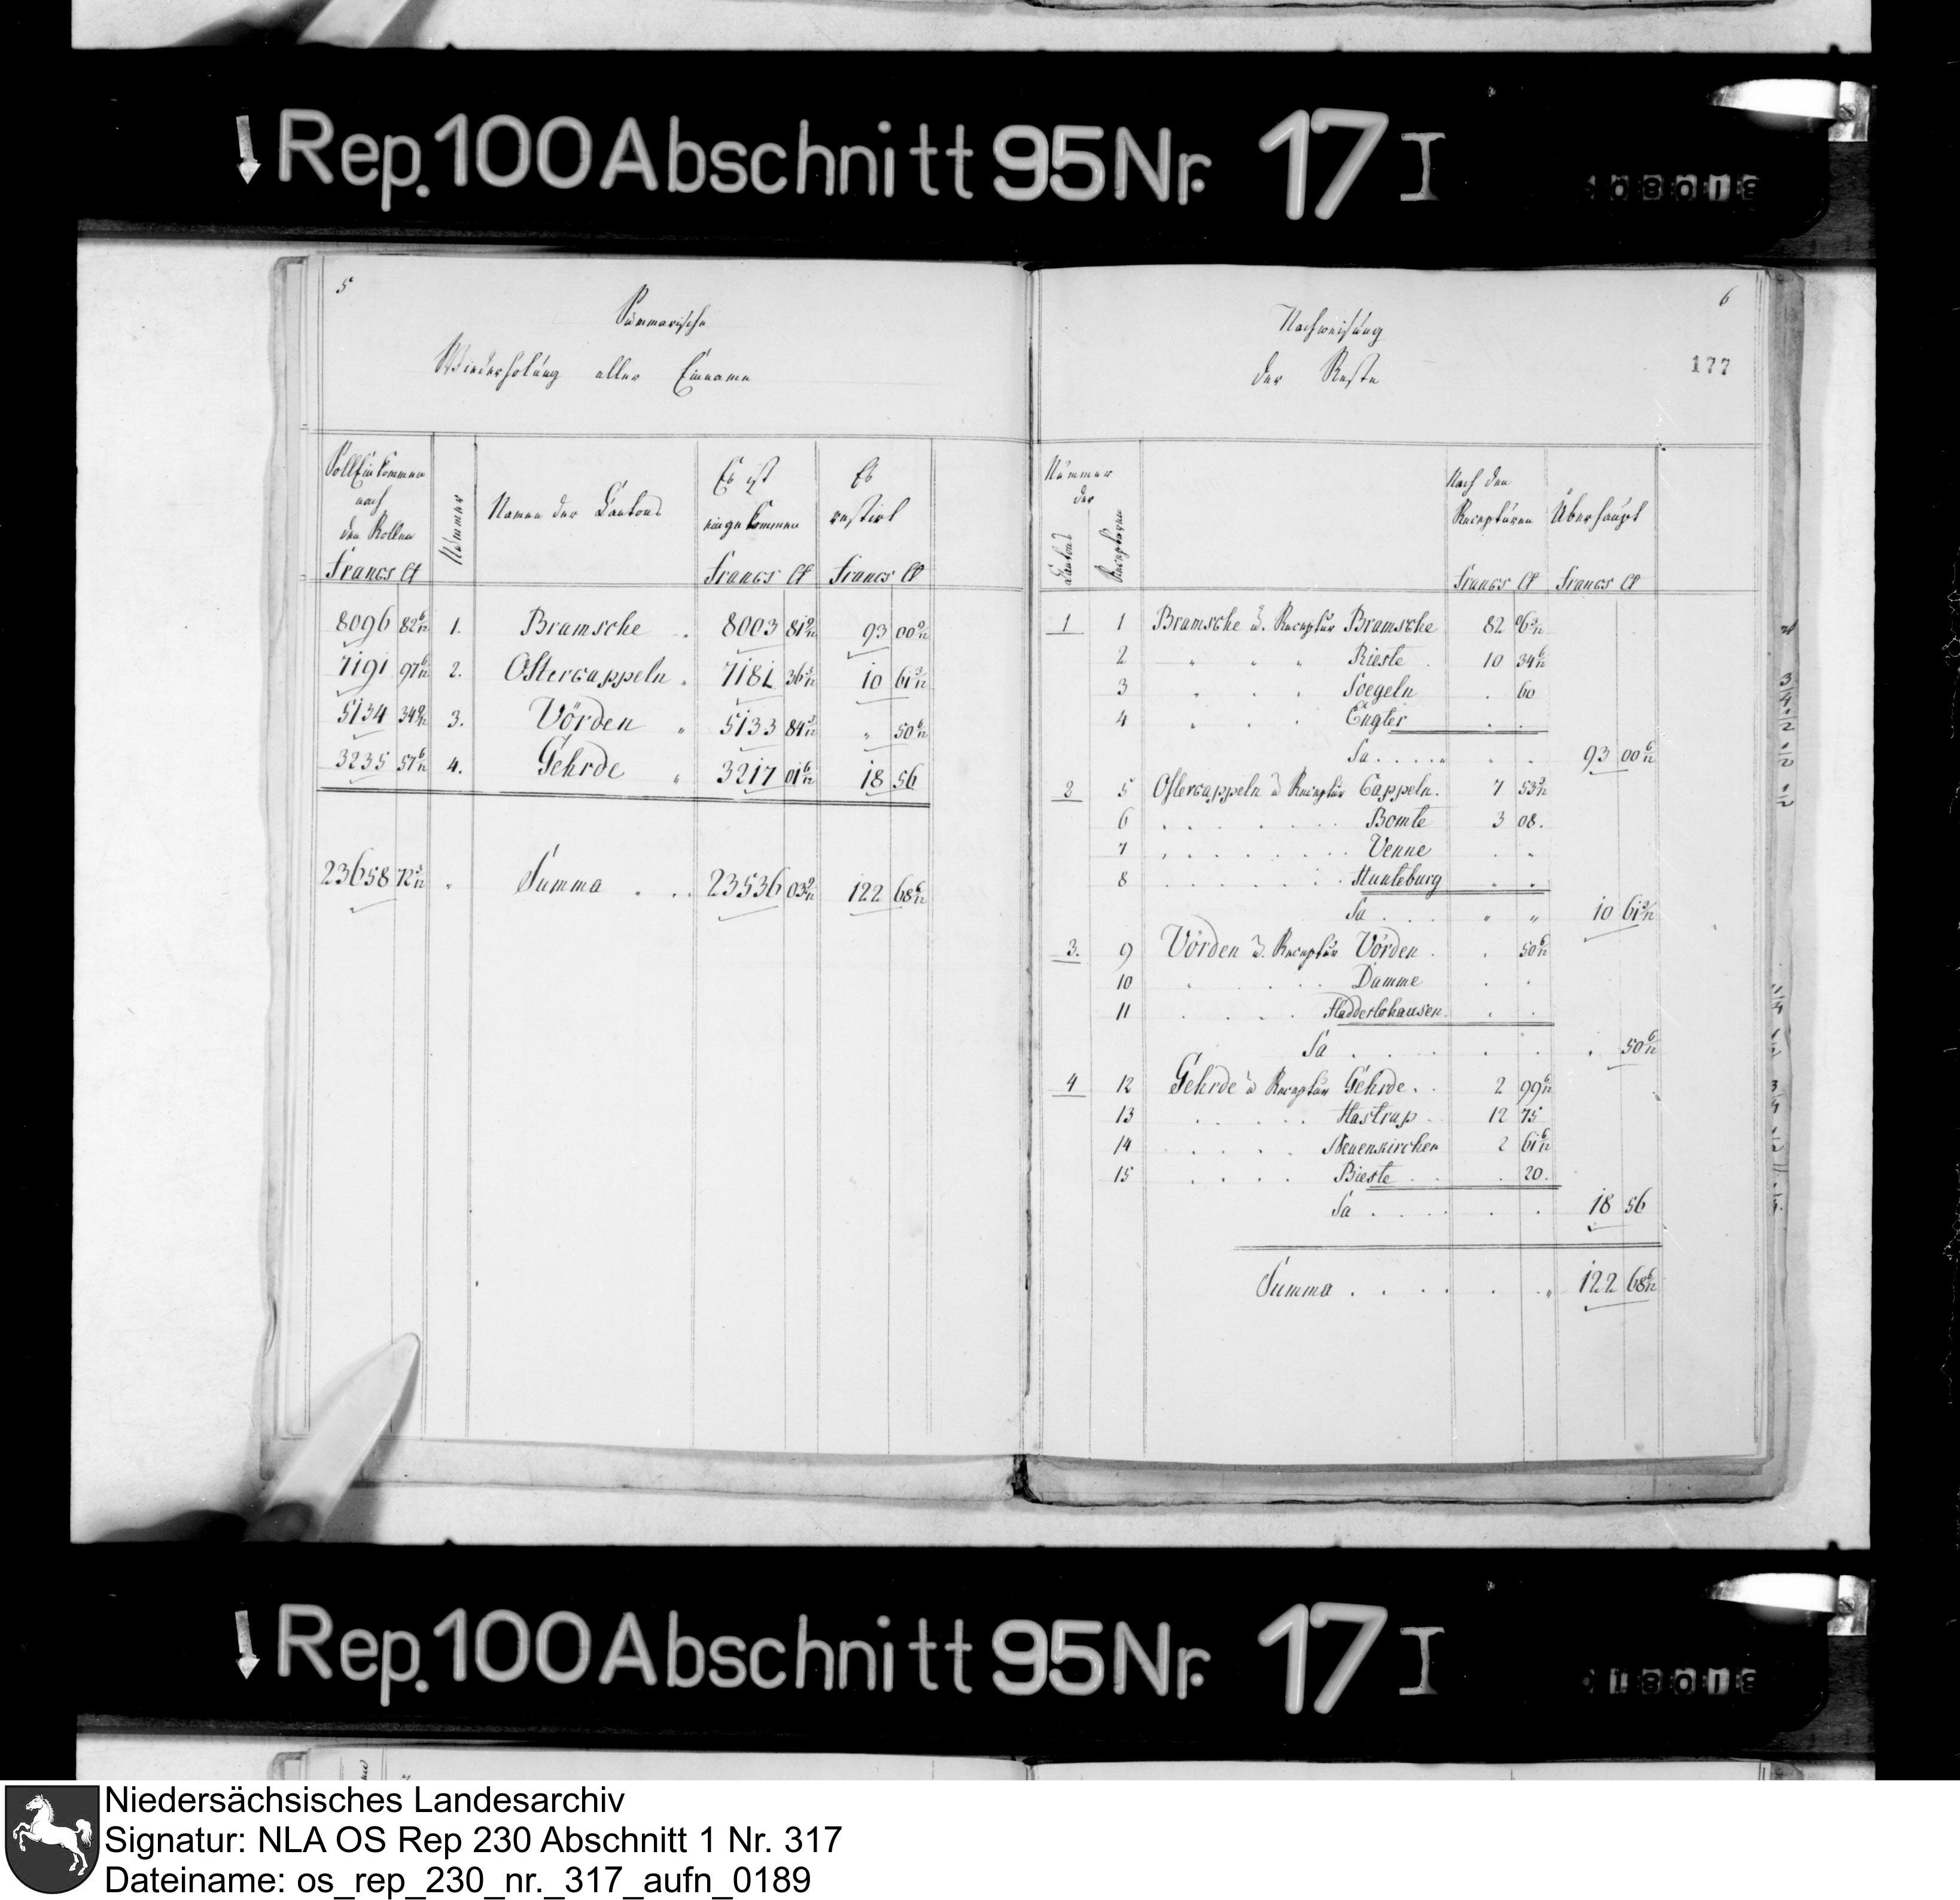 Rep. 100 Abschnitt 95 Nr. 17 I
5
Summarische
Wiederholung aller Einname
Soll Einkommen nach den Rollen
Francs Ct
Nummer
Namen der Cantons
Es ist eingekommen
Francs Ct
Es restirt
Francs Ct
8096 82 6/12 1. Bramsche . 8003 81 9/12 93 00 9/12
7191 97 6/12 2. Ostercappeln " 7181 36 3/12 10 61 3/12
5134 34 9/12 3. Vörden " 5133 84 3/12 " 50 6/12
3235 57 6/12 4. Gehrde " 3217 01 6/12 18 56
23658 72 3/12 " Summa . . . 23536 03 9/12 122 68 6/12
6
177
Nachweisung
der Reste
Nummer der
Cantons
Recepturen
Nach den Recepturen
Francs Ct
Überhaupt
Francs Ct
1 1 Bramsche u. Receptur Bramsche 82 06 3/12
2 " " " Rieste . 10 34 6/12
3 " . . Soegeln . 60
4 " . . Engter . .
Sa . . . . " . . 93 00 6/12
2 5 Ostercappeln u Receptur Cappeln. 7 53 3/12
6 . . . . . . Bomte 3 08.
7 . . . . . . Venne . .
8 . . . . . . Hunteburg . .
Sa . . . " " 10 61 3/12
3. 9 Vörden u. Receptur Vörden . . 50 6/12
10 . . . . Damme . .
11 . . . . Hadderlohausen . .
Sa . . . . . . . 50 6/12
4 12 Gehrde u Receptur Gehrde. . 2 99 6/12
13 . . . . Hastrup . 12 75
14 . . . . Neuenkirchen 2 61 6/12
15 . . . . Bieste . . . 20.
Sa . . . . . . 18 56
Summa . . . . . . " 122 68 6/12
Rep. 100 Abschnitt 95 Nr. 17 I
Niedersächsisches Landesarchiv
Signatur: NLA OS Rep 230 Abschnitt 1 Nr. 317
Dateiname: os_rep_230_nr._317_aufn_0189